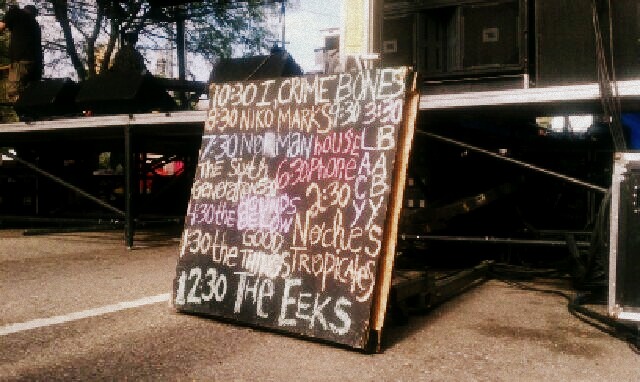 10:30 I, CRIME BONES
9:30 NIKO MARKS 9:30 3:30
7:30 NOMAN house LB
The Sixth 6:30 Phone AA
Generation 2:30 CB
4:30 the Below YY
GOOD Noches
1:30 the THINGS TROPICALES
12:30 THE EEKS